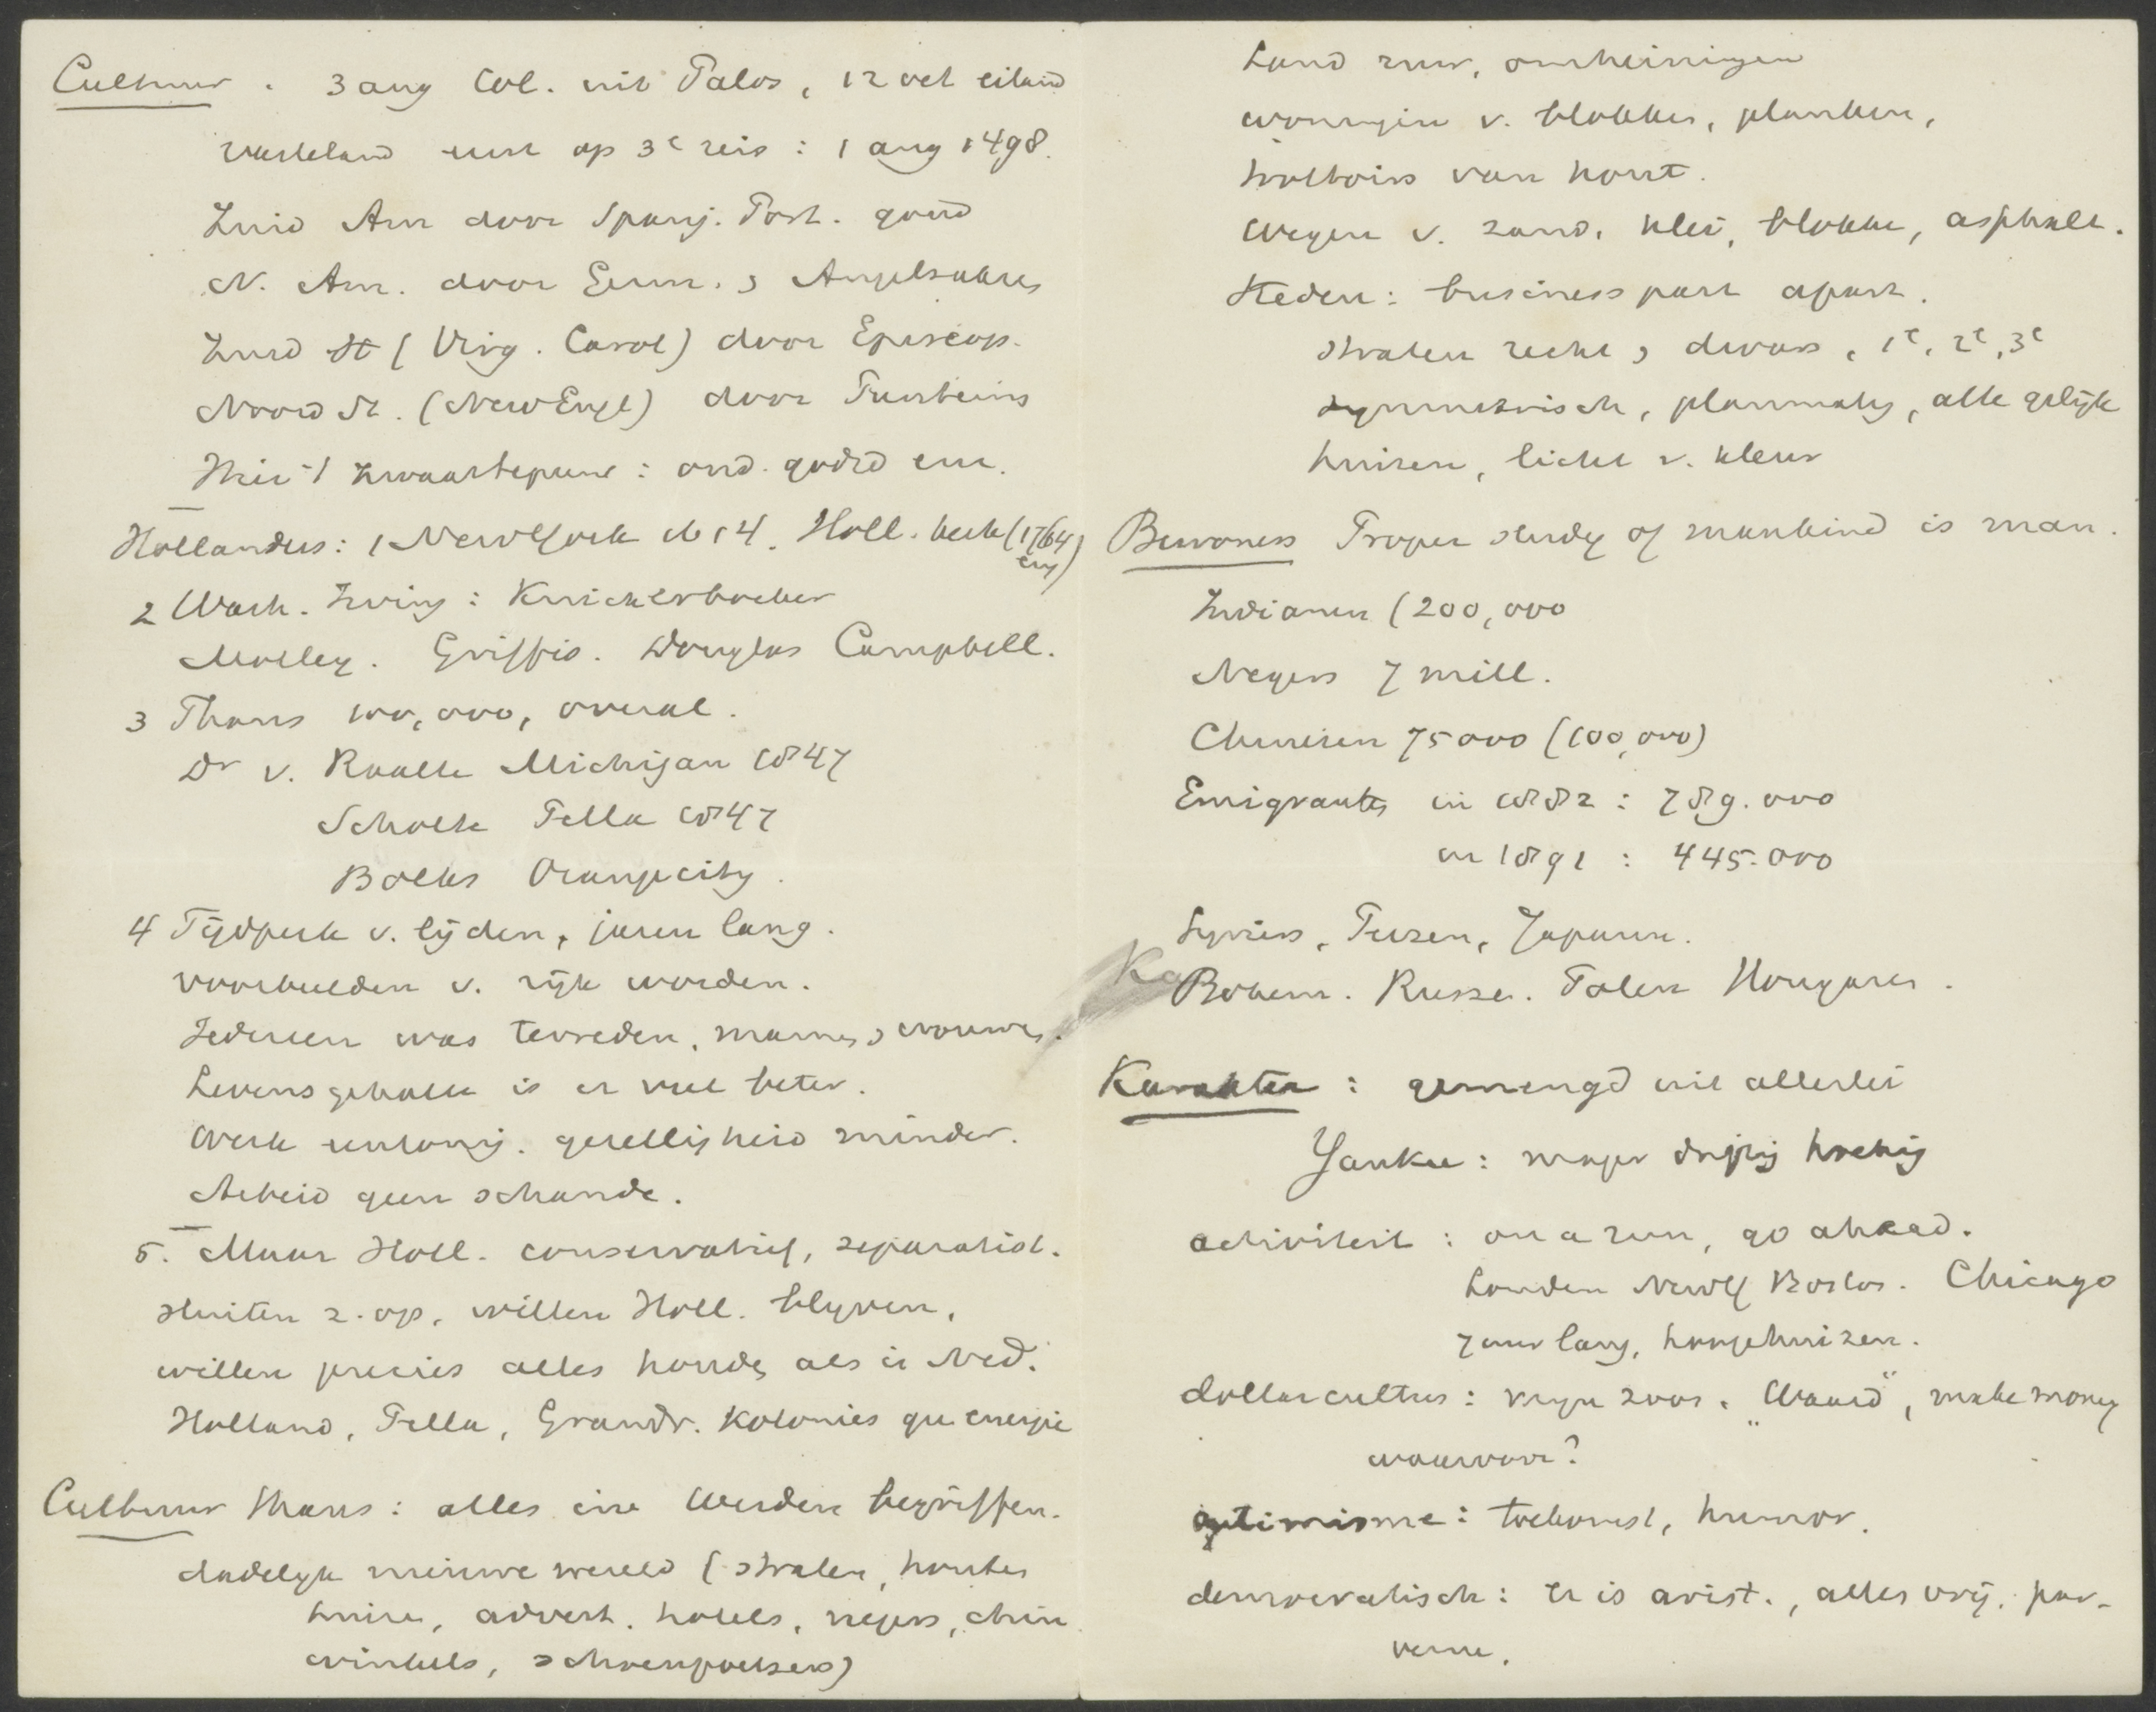 Cultuur. 3 aug Col. uit Palos, 12 oct eiland
vasteland eerst op 3e reis: 1 aug 1498.
Zuid Am door Spanj. Port. goud
N. Am. door Germ. & Angelsakses
Zuid St (Virg. Carol) door Episcop.
Noord St. (New Engl) door Puriteins
Hier 't zwaartepunt: ond. godsd en.
Hollanders: 1 NewYork 1614. Holl. heerl (1764 eng)
2 Wash. Irving: Knickerbocker
Motley. Griffis. Douglas Campbell.
3 Thans 100,000, overal.
Dr v. Raalte Michigan 1847
Scholte Pella 1847
Bolks Orangecity.
4 Tijdperk v. lijden, jaren lang.
voorbeelden v. rijk worden.
Iedereen was tevreden, mannen & vrouwen.
Levensgehalte is er veel beter.
Werk eentonig. gezelligheid minder.
Arbeid geen schande.
5. Maar Holl. conservatief, separatist.
sluiten z. op, willen Holl. blijven,
willen precies alles houden als in Ned.
Holland, Pella, Grandr. Kolonies gn energie
Cultuur thans: alles in 't Werden begriffen.
dadelijk nieuwe wereld (straten, houten
huizen, advert. hotels, negers, chin
winkels, schoenpoetsers)
Land ruw, omheiningen
woningen v. blokken, planken,
trottoirs van hout.
Wegen v. zand, klei, blokken, asphalt.
Steden: business part apart.
straten recht & dwars, 1e, 2e, 3e
symmetrisch, planmatig, alle gelijk
huizen, licht v. kleur
Bewoners Proper study of mankind is man.
Indianen (200,000
Negers 7 mill.
Chinezen 75000 (100,000)
Emigranten in 1882: 789.000
in 1891: 445.000
Syriers, Perzen, Japann.
Bohem. Russen. Polen Hongaren.
Karakter: gemengd uit allerlei
Yankee: mager driftig hoekig
activiteit: on a run, go ahead.
Londen NewY Boston. Chicago
7 uur lang, hooge huizen.
dollarcultus: eigen zoon. "Waard", make money
waarvoor?
optimisme: toekomst, humor.
democratisch: er is arist., alles vrij, par-
venu.